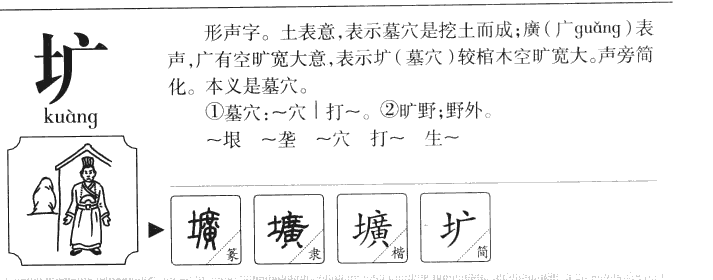 圹
kuàng
形声字。土表意,表示墓穴是挖土而成;廣(广guǎng)表
声,广有空旷宽大意,表示圹(墓穴)较棺木空旷宽大。声旁简
化。本义是墓穴。
①墓穴:～穴｜打～。②旷野;野外。
～垠 ～垄 ～穴 打～ 生～
壙 篆 壙 隶 壙 楷 圹 简